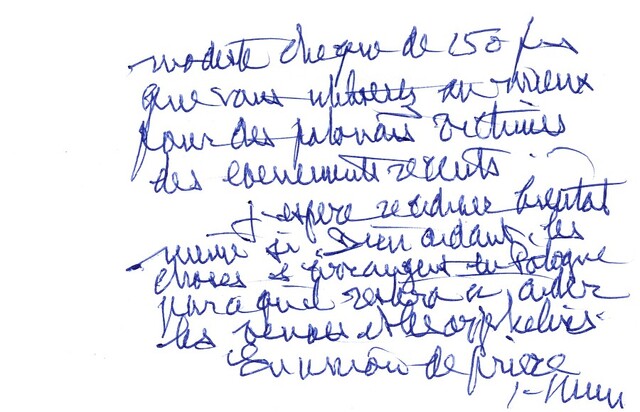 modeste cheque de 150 frs
que vous utiliserez au mieux
pour des polonais victimes
des evenements recents.
J'espere recidiver bientot
meme si Dieu aidant, les
choses s'arrangent en Pologne
parce qu'il restera a aider
les veuves et les orphelins.
En union de priere